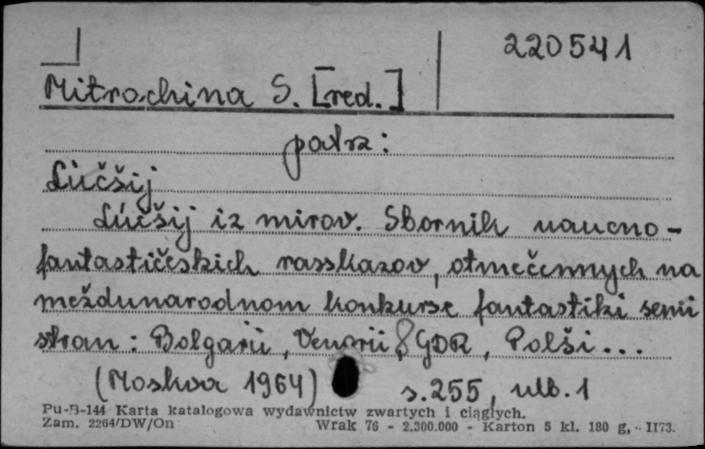 220541
Mitrochina S. [red.]
patrz:
Lučšij
Lučšij iz mirov. Sbornik naucno-
fantastičeskich rasskazov, otmečennych na
meždunarodnom konkurse fantastiki semi
stran: Bolgarii, Vengrii, GDR, Polši...
(Moskva 1964) s. 255, nlb. 1
Pu-B-144 Karta katalogowa wydawnictw zwartych i ciągłych.
Zam. 2264/DW/On Wrak 76 - 2.300.000 - Karton 5 kl. 180 g, - II73.